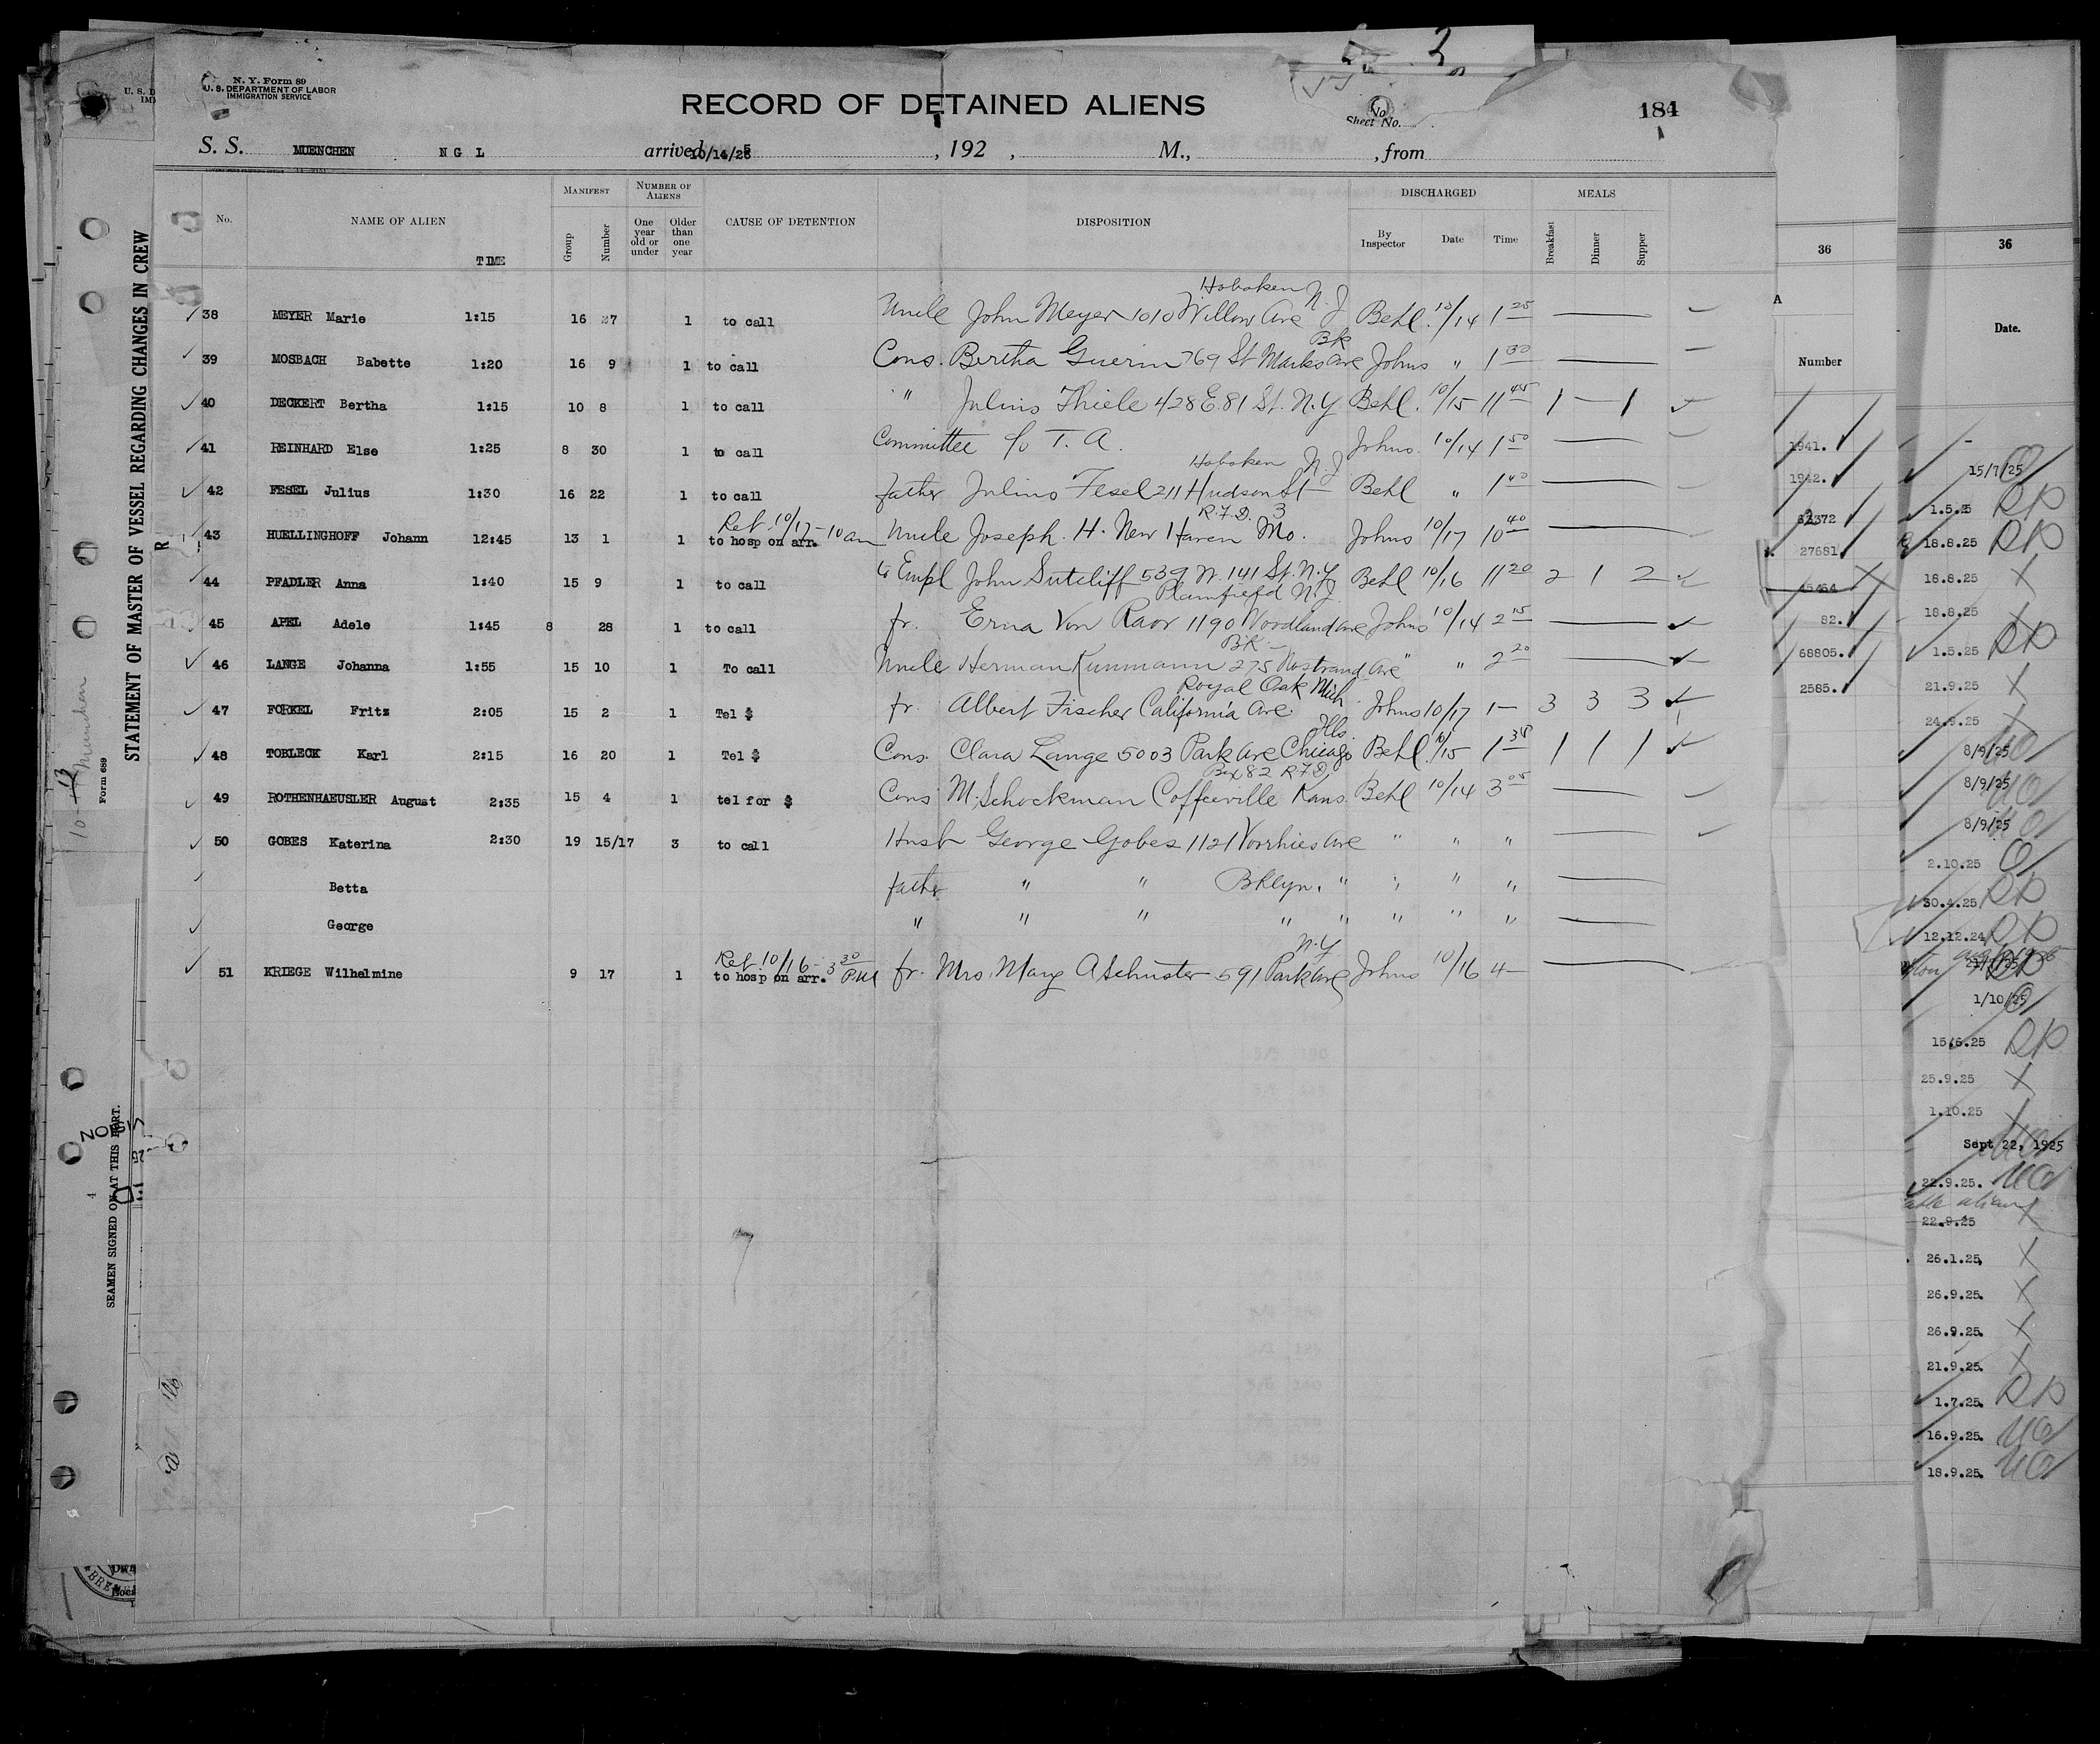 N. Y. Form 89
U. S. DEPARTMENT OF LABOR
IMMIGRATION SERVICE
RECORD OF DETAINED ALIENS
Sheet No.
184
S. S. MUENCHEN N G L arrived 10/14/25, 192 , M., , from
No. NAME OF ALIEN TIME MANIFEST Group Number NUMBER OF ALIENS One year old or under Older than one year CAUSE OF DETENTION DISPOSITION DISCHARGED By Inspector Date Time MEALS Breakfast Dinner Supper
Hoboken N. J
38 MEYER Marie 1:15 16 27 1 to call Uncle John Meyer 1010 Willow Ave Behl. 10/14 1 25
Bk
39 MOSBACH Babette 1:20 16 9 1 to call Cons. Bertha Guerin 769 St Marks Ave Johns " 1 30
40 DECKERT Bertha 1:15 10 8 1 to call " Julius Thiele 428 E. 81 St. N.Y Behl. 10/15 11 45 1 — 1
41 REINHARD Else 1:25 8 30 1 to call Committee c/o T. A. Johns. 10/14 1 50
Hoboken N. J
42 FESEL Julius 1:30 16 22 1 to call father Julius Fesel 211 Hudson St Behl " 1 40
Ret 10/17 - 10 am R.F.D. 3
43 HUELLINGHOFF Johann 12:45 13 1 1 to hosp on arr. Uncle Joseph. H. New Haven Mo. Johns 10/17 10 40
44 PFADLER Anna 1:40 15 9 1 to call to Empl John Sutcliff 539 W. 141 St. N.Y Behl 10/16 11 20 2 1 2
Plainfield N.J.
45 APEL Adele 1:45 8 28 1 to call fr. Erna Von Raor 1190 Woodland Ave Johns 10/14 2 15
Bk
46 LANGE Johanna 1:55 15 10 1 To call Uncle Herman Kunmann 275 Nostrand Ave " " 2 20
Royal Oak Mich
47 FORKEL Fritz 2:05 15 2 1 Tel $ fr. Albert Fischer California Ave. Johns 10/17 1— 3 3 3
Ills.
48 TOBLECK Karl 2:15 16 20 1 Tel $ Cons. Clara Lange 5003 Park Ave Chicago Behl. 10/15 1 35 1 1 1
Box 82 R.F.D.
49 ROTHENHAEUSLER August 2:35 15 4 1 tel for $ Cons M. Schockman Coffeeville Kans. Behl 10/14 3 05
50 GOBES Katerina 2:30 19 15/17 3 to call Husb George Gobes 1121 Voorhies Ave " " "
Betta father " " Bklyn. " " " "
George " " " " " " " "
Ret 10/16 - 3 30 PM N.Y
51 KRIEGE Wilhelmine 9 17 1 to hosp on arr. fr. Mrs. Mary A Schuster 591 Park Ave Johns 10/16 4—
STATEMENT OF MASTER OF VESSEL REGARDING CHANGES IN CREW
Form 689
SEAMEN SIGNED ON AT THIS PORT.
36
Number
1941.
1942.
27681
82.
68805.
2585.
36
Date.
15/7/25
1.5.25
18.8.25
18.8.25
18.8.25
1.5.25
21.9.25
24.9.25
8/9/25
8/9/25
8/9/25
2.10.25
30.4.25
12.12.24
1/10/25
15.6.25
25.9.25
1.10.25
Sept 22, 1925
22.9.25.
22.9.25
26.1.25.
26.9.25.
26.9.25.
21.9.25.
1.7.25.
16.9.25.
18.9.25.